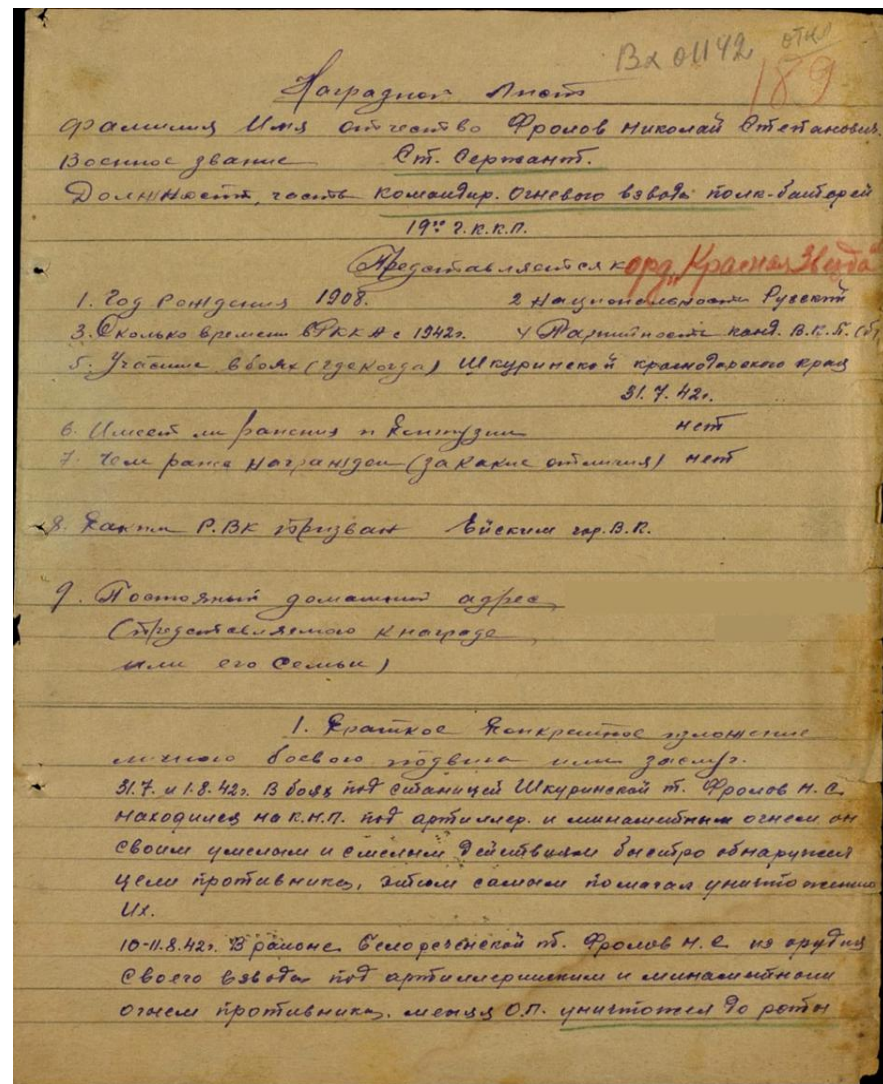 Вх 01142 откл
189
Наградной лист
Фамилия Имя отчество Фролов Николай Степанович.
Военное звание Ст. Сержант.
Должность, часть командир. огневого взвода полк. батареи
19го г.к.к.п.
Представляется к орд. „Красная Звезда"
1. Год рождения 1908. 2 Национальность Русский
3. Сколько времени в РККА с 1942г. 4 Партийность канд. В.К.П.(б)
5. Участие в боях (где когда) Шкуринской краснодарского края
31.7.42г.
6. Имеет ли ранения и контузии нет
7. Чем ранее награжден (за какие отличия) нет
8. Каким Р.ВК призван Ейским гор.В.К.
9. Постоянный домашний адрес
(представляемого к награде
или его семьи)
1. Краткое конкретное изложение
личного боевого подвига или заслуг.
31.7. и 1.8.42г. В боях под станицей Шкуринской т. Фролов Н.С.
находился на К.Н.П. под артиллер. и минаметным огнем он
своим умелым и смелым действиям быстро обнаружил
цели противника, этим самым помагал уничтожению
их.
10-11.8.42г. В районе Белореченской т. Фролов Н.С из орудия
своего взвода под артиллерийским и минаметном
огнем противника, меняя О.П. уничтожил до роты